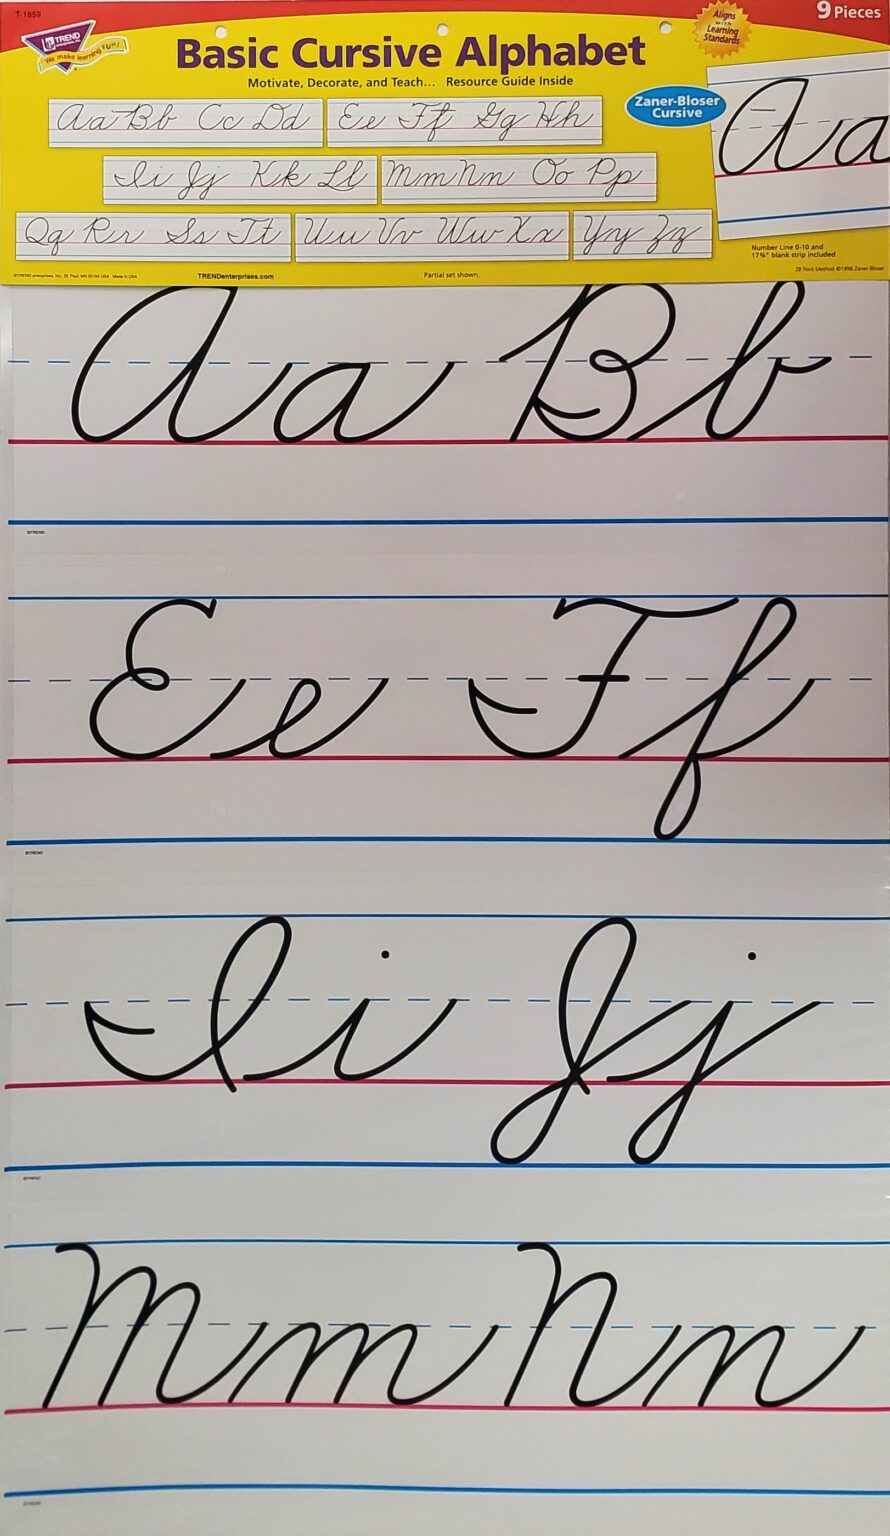 T-1859
9 Pieces
TREND enterprises, Inc.
We make learning FUN!
Basic Cursive Alphabet
Aligns
with
Learning
Standards
Motivate, Decorate, and Teach... Resource Guide Inside
Zaner-Bloser
Cursive
Aa Bb Cc Dd Ee Ff Gg Hh
Aa
Ii Jj Kk Ll Mm Nn Oo Pp
Qq Rr Ss Tt Uu Vv Ww Xx Yy Zz
Number Line 0-10 and
17¾" blank strip included
©TREND enterprises, Inc. St. Paul, MN 55164 USA Made in USA
TRENDenterprises.com
Partial set shown.
ZB Font Method ©1996 Zaner-Bloser
Aa Bb
©TREND
Ee Ff
©TREND
Ii Jj
©TREND
Mm Nn